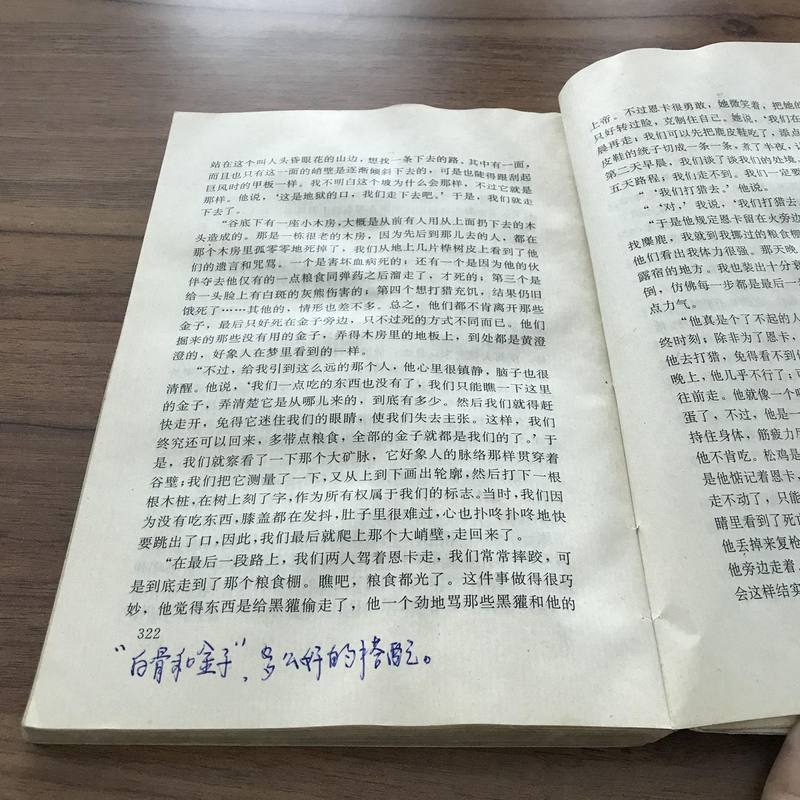 站在这个叫人头昏眼花的山边，想找一条下去的路。其中有一面，
而且也只有这一面的峭壁是逐渐倾斜下去的，可是也陡得跟刮起
巨风时的甲板一样。我不明白这个坡为什么会那样，不过它就是
那样。他说，‘这是地狱的口，我们走下去吧。’于是，我们就走
下去了。
“谷底下有一座小木房，大概是从前有人用从上面扔下去的木
头造成的。那是一栋很老的木房，因为先后到那儿去的人，都在
那个木房里孤零零地死掉了，我们从地上几片桦树皮上看到了他
们的遗言和咒骂。一个是害坏血病死的；还有一个是因为他的伙
伴夺去他仅有的一点粮食同弹药之后溜走了，才死的；第三个是
给一头脸上有白斑的灰熊伤害的；第四个想打猎充饥，结果仍旧
饿死了……其他的，情形也差不多。总之，他们都不肯离开那些
金子，最后只好死在金子旁边，只不过死的方式不同而已。他们
掘来的那些没有用的金子，弄得木房里的地板上，到处都是黄澄
澄的，好象人在梦里看到的一样。
“不过，给我引到这么远的那个人，他心里很镇静，脑子也很
清醒。他说，‘我们一点吃的东西也没有了，我们只能瞧一下这里
的金子，弄清楚它是从哪儿来的，到底有多少。然后我们就得赶
快走开，免得它迷住我们的眼睛，使我们失去主张。这样，我们
终究还可以回来，多带点粮食，全部的金子就都是我们的了。’于
是，我们就察看了一下那个大矿脉，它好象人的脉络那样贯穿着
谷壁；我们把它测量了一下，又从上到下画出轮廓，然后打下一根
根木桩，在树上刻了字，作为所有权属于我们的标志。当时，我们因
为没有吃东西，膝盖都在发抖，肚子里很难过，心也扑咚扑咚地快
要跳出了口，因此，我们最后就爬上那个大峭壁，走回来了。
“在最后一段路上，我们两人驾着恩卡走，我们常常摔跤，可
是到底走到了那个粮食棚。瞧吧，粮食都光了。这件事做得很巧
妙，他觉得东西是给黑獾偷走了，他一个劲地骂那些黑獾和他的
322
“白骨和金子”，多么好的搭配。
上帝。不过恩卡很勇敢，她微笑着，把她的
只好转过脸，克制住自己。她说，‘我们在
晨再走；我们可以先把鹿皮鞋吃了，添点
皮鞋的统子切成一条一条，煮了半夜，让
第二天早晨，我们谈了谈我们的处境。
五天路程；我们走不到。我们一定要
“‘我们打猎去。’他说。
“‘对，’我说，‘我们打猎去。’
“于是他规定恩卡留在火旁边
找麋鹿，我就到我挪过的粮食棚
他们看出我体力很强。那天晚
露宿的地方。我也装出十分衰
倒，仿佛每一步都是最后一
点力气。
“他真是个了不起的人
终时刻；除非为了恩卡，
他去打猎，免得看不到他
晚上，他几乎不行了；可
往前走。他就像一个喝
蛋了，不过，他是一
持住身体，筋疲力尽
他不肯吃。松鸡是
是他惦记着恩卡，
走不动了，只能
睛里看到了死亡
他丢掉来复枪
他旁边走着。
会这样结实